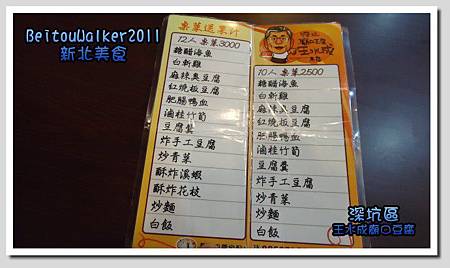 BeitouWalker2011
新北美食
桌菜送果汁
12人 桌菜3000
糖醋海魚
白斬雞
麻辣臭豆腐
紅燒板豆腐
肥腸鴨血
滷桂竹筍
豆腐羹
炸手工豆腐
炒青菜
酥炸溪蝦
酥炸花枝
炒麵
白飯
王水成
10人 桌菜2500
糖醋海魚
白斬雞
麻辣臭豆腐
紅燒板豆腐
肥腸鴨血
滷桂竹筍
豆腐羹
炸手工豆腐
炒青菜
炒麵
白飯
深坑區
王水成廟口豆腐